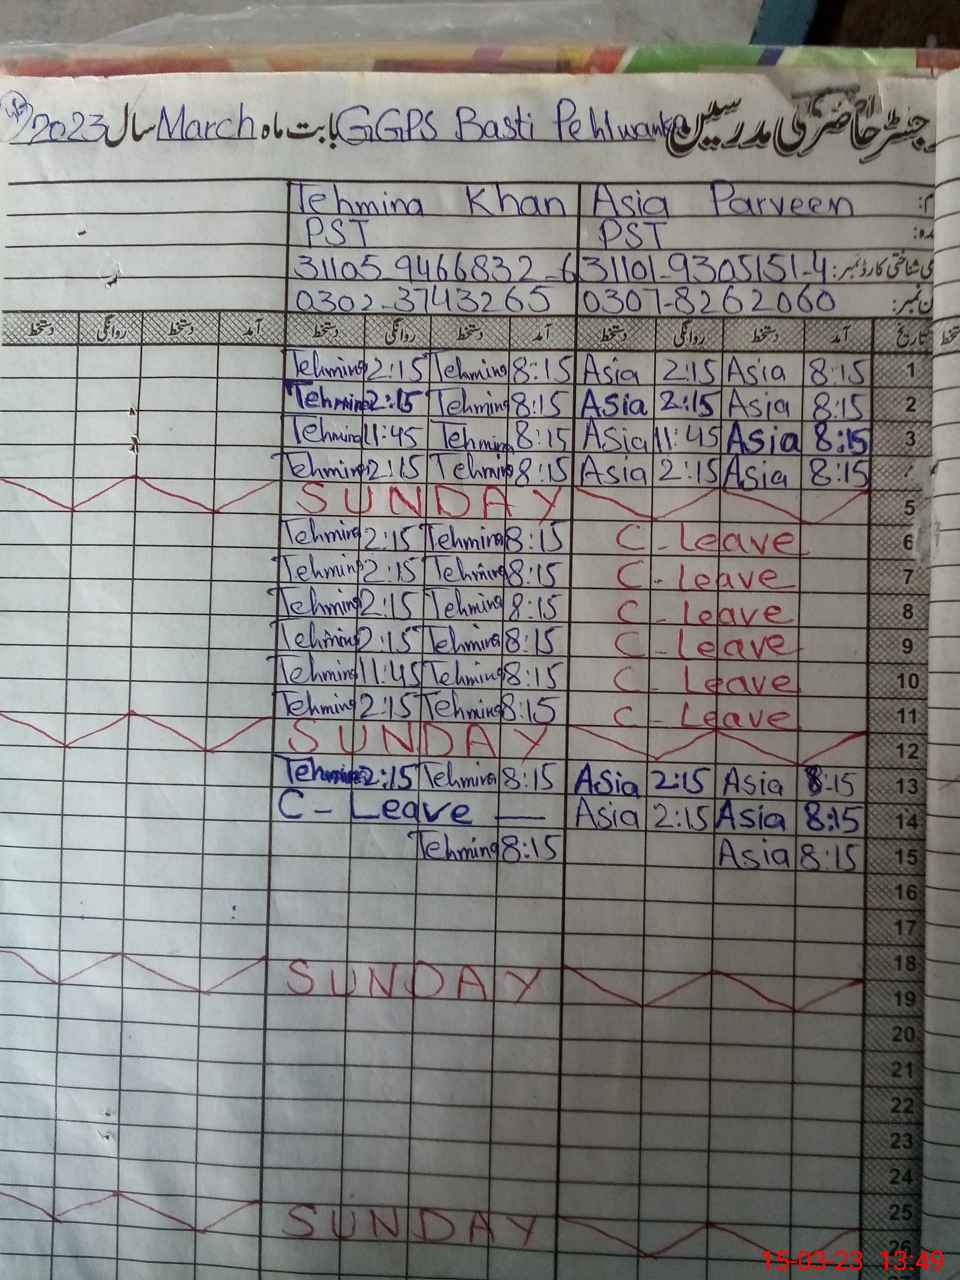 رجسٹر حاضری مدرسین GGPS Basti Pehlwanka بابت ماہ March سال 2023
نام: Asia Parveen Tehmina Khan
عہدہ: PST PST
شناختی کارڈ نمبر: 31101-9305151-4 31105-9466832-6
فون نمبر: 0307-8262060 0302-3743265
تاریخ آمد دستخط روانگی دستخط آمد دستخط روانگی دستخط آمد دستخط روانگی دستخط
1 8:15 Asia 2:15 Asia 8:15 Tehmina 2:15 Tehmina
2 8:15 Asia 2:15 Asia 8:15 Tehmina 2:15 Tehmina
3 8:15 Asia 11:45 Asia 8:15 Tehmina 11:45 Tehmina
4 8:15 Asia 2:15 Asia 8:15 Tehmina 2:15 Tehmina
5 SUNDAY
6 C-Leave 8:15 Tehmina 2:15 Tehmina
7 C-Leave 8:15 Tehmina 2:15 Tehmina
8 C-Leave 8:15 Tehmina 2:15 Tehmina
9 C-Leave 8:15 Tehmina 2:15 Tehmina
10 C-Leave 8:15 Tehmina 11:45 Tehmina
11 C-Leave 8:15 Tehmina 2:15 Tehmina
12 SUNDAY
13 8:15 Asia 2:15 Asia 8:15 Tehmina 2:15 Tehmina
14 8:15 Asia 2:15 Asia C-Leave —
15 8:15 Asia 8:15 Tehmina
16
17
18
19 SUNDAY
20
21
22
23
24
25
26 SUNDAY
15-03-23 13:49